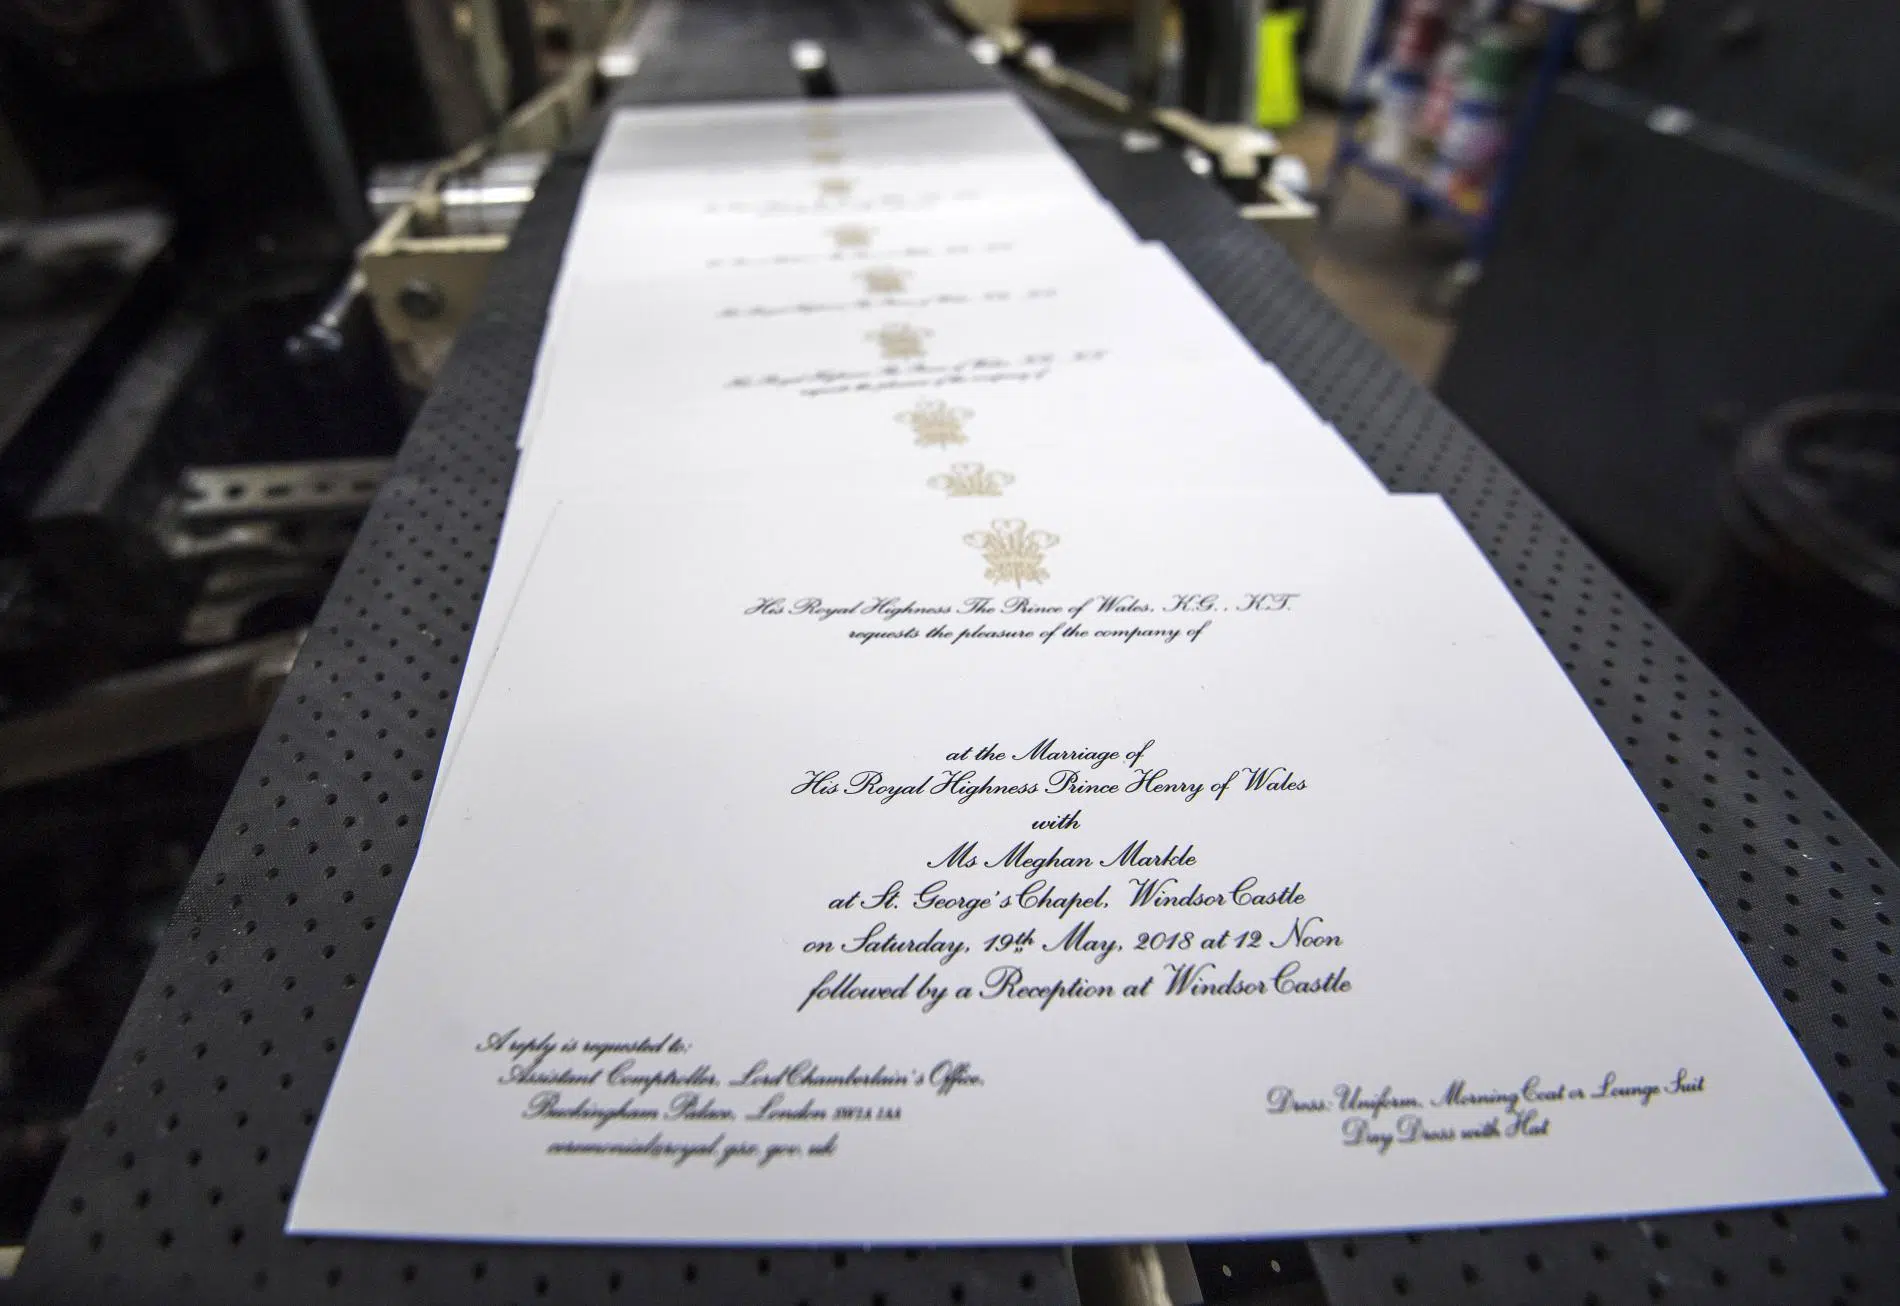 His Royal Highness The Prince of Wales, K.G., K.T.
requests the pleasure of the company of
at the Marriage of
His Royal Highness Prince Henry of Wales
with
Ms Meghan Markle
at St. George's Chapel, Windsor Castle
on Saturday, 19th May, 2018 at 12 Noon
followed by a Reception at Windsor Castle
A reply is requested to:
Assistant Comptroller, Lord Chamberlain's Office,
Buckingham Palace, London SW1A 1AA
ceremonial@royal.gsx.gov.uk
Dress: Uniform, Morning Coat or Lounge Suit
Day Dress with Hat